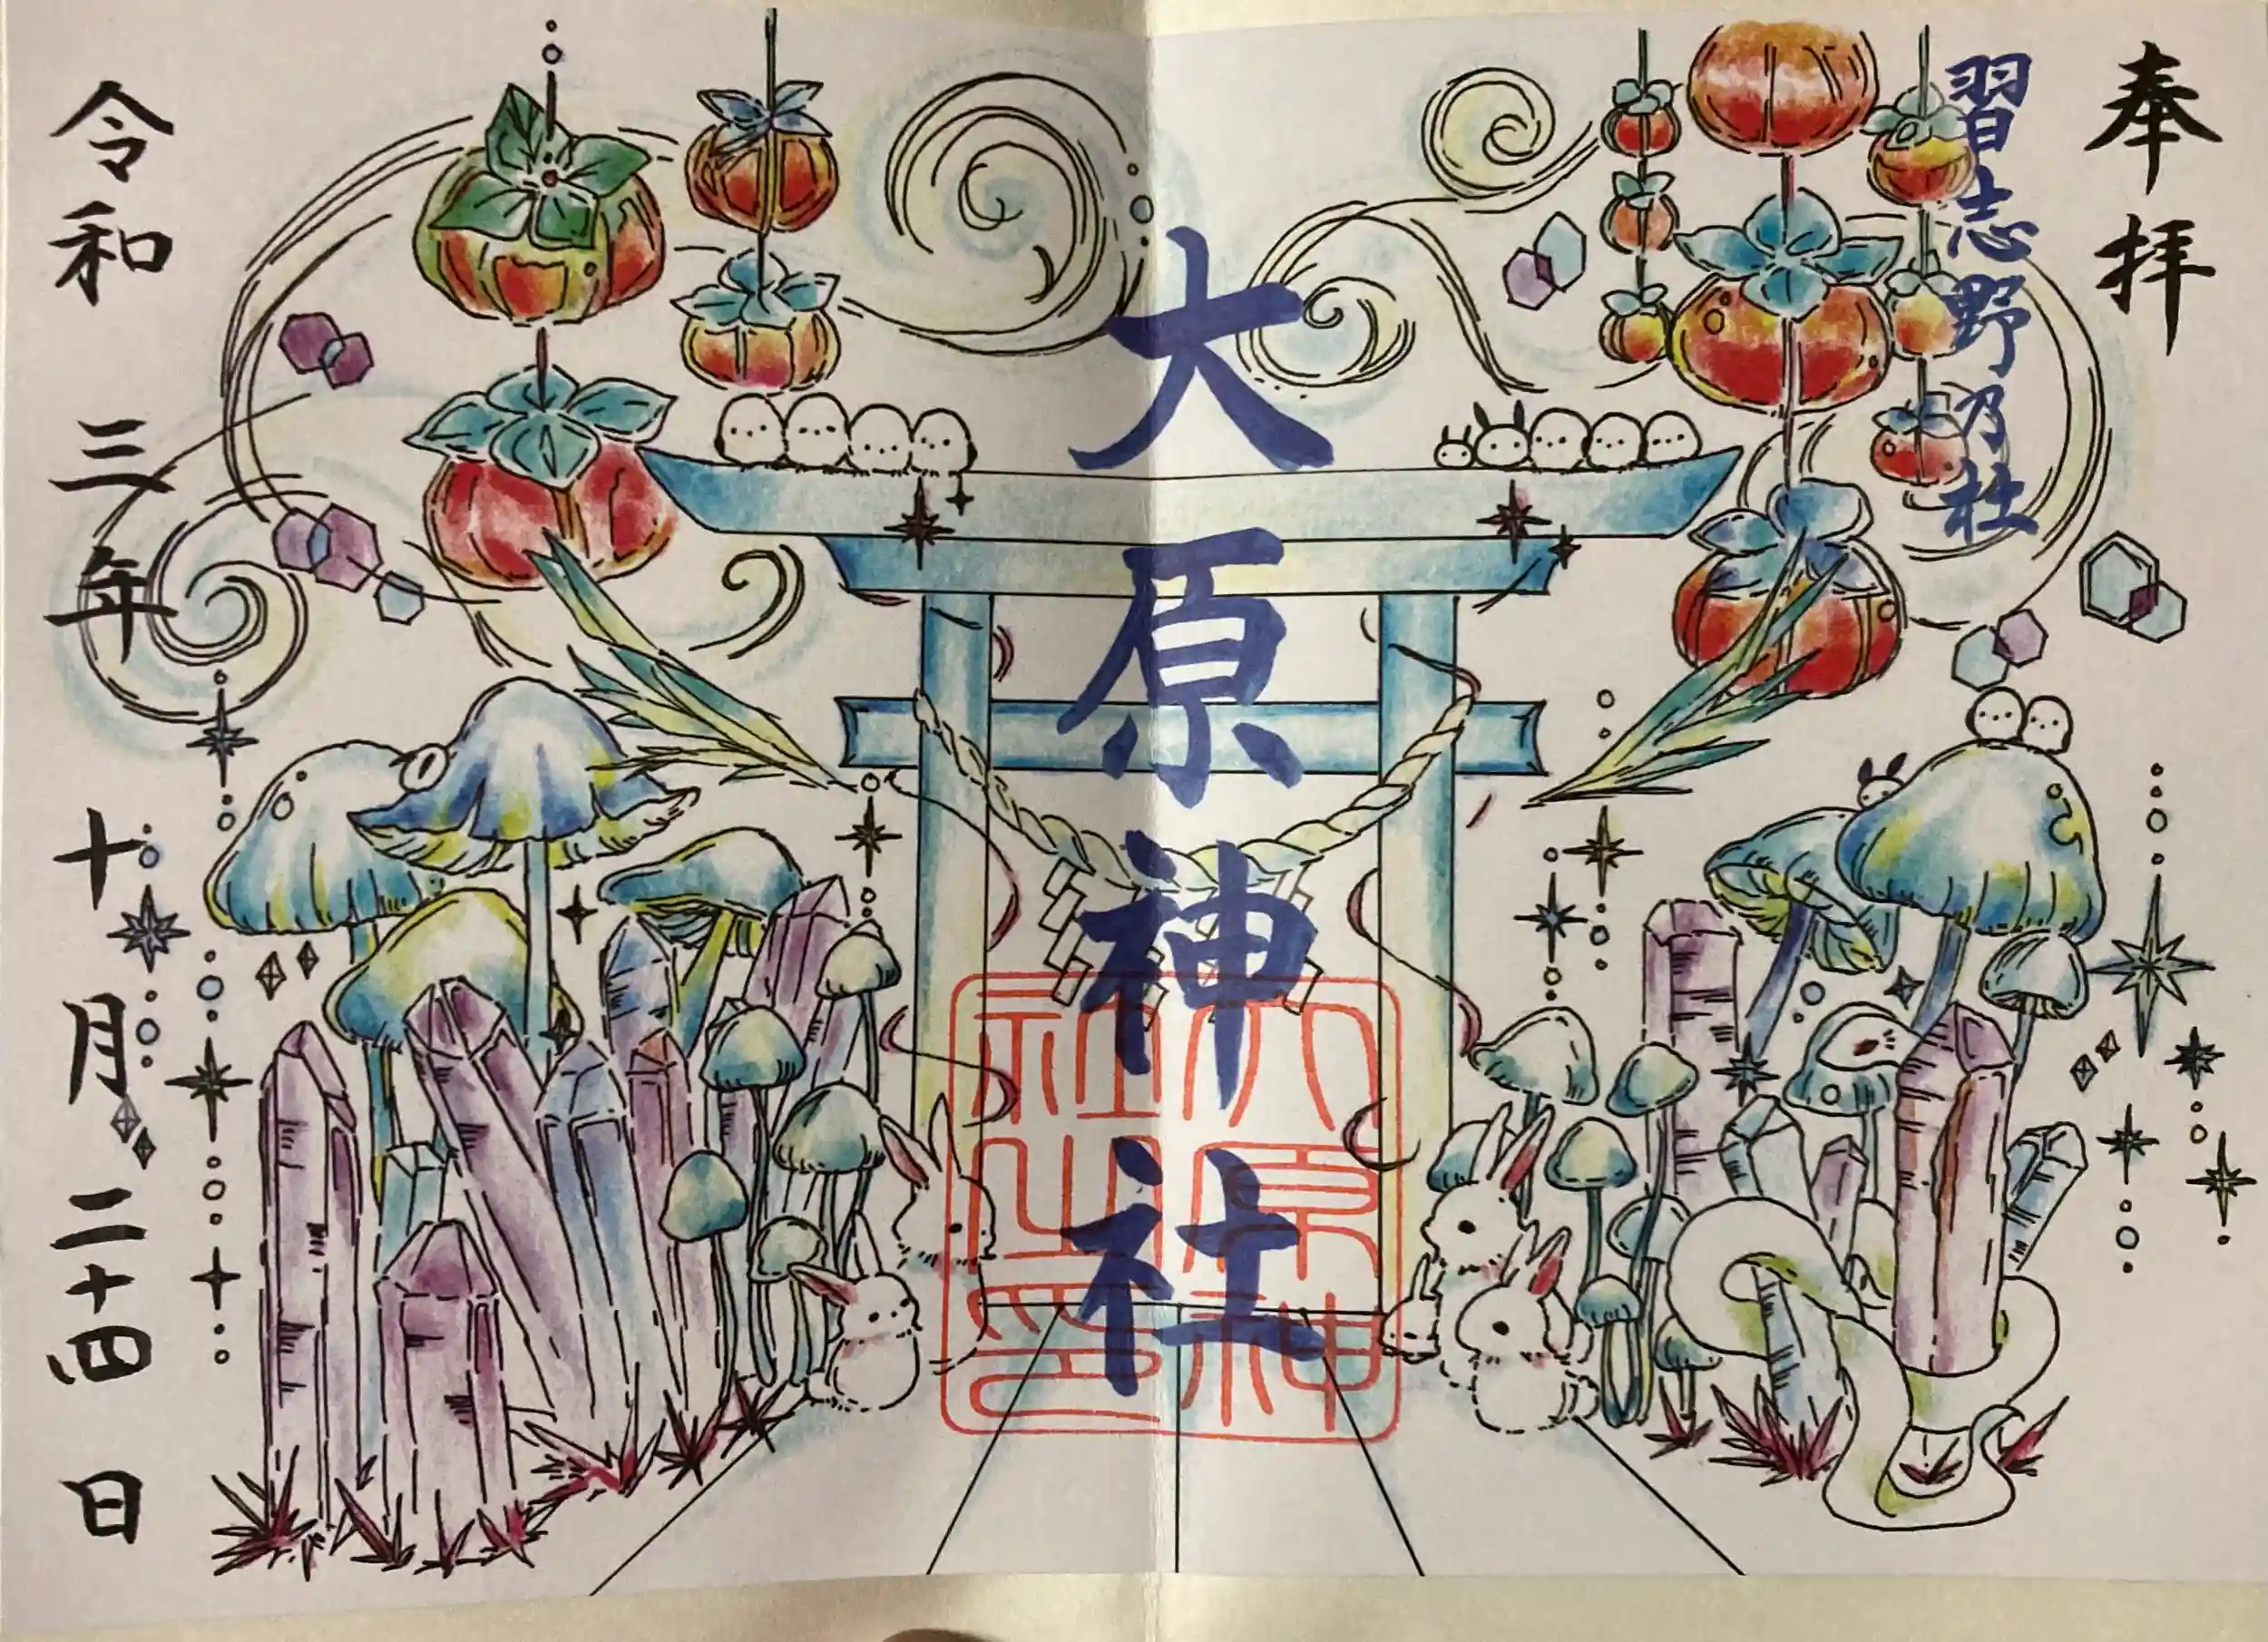 奉拝
習志野乃杜
大原神社
大原神社之印
令和三年十月二十四日